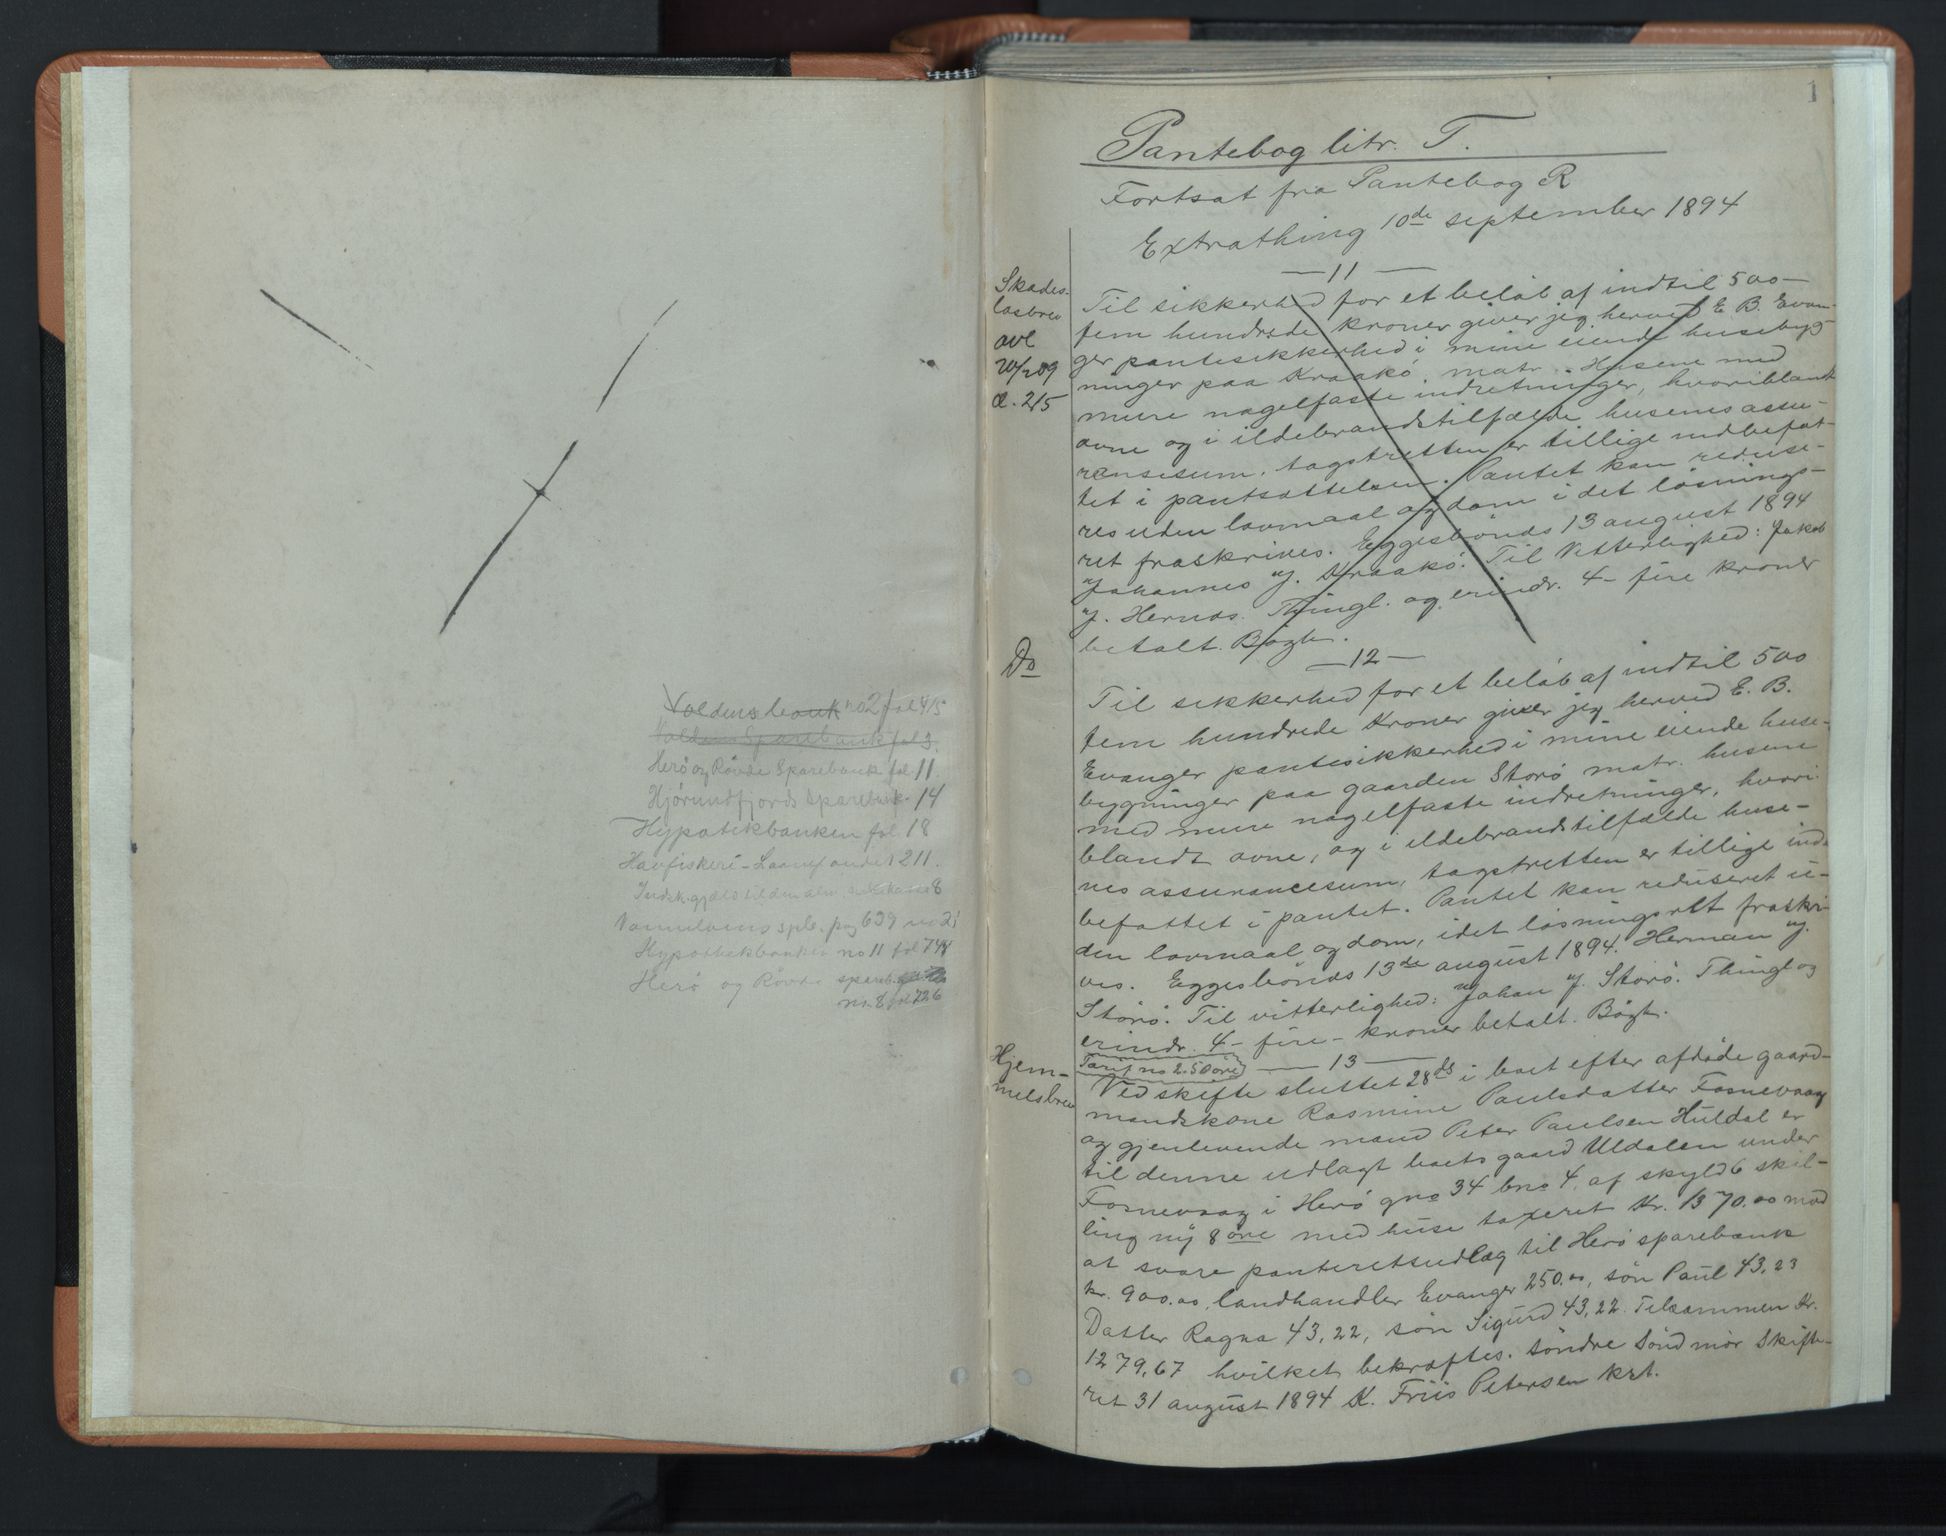 Voldens bank no 2 fol 415
Voldens Sparebank fol 3.
Herö og Rövde Sparebank fol 11.
Hjörundfjords Sparebank 14
Hypotekbanken fol. 18
Havfiskeri-Laanefondet 211.
8
spb. pag 639 no 2
Hypothekbanken no 11 fol 744
Herö og Rövde spareb.
no. 8 fol 726
1
Pantebog litr. T.
Fortsat fra Pantebog R
Extrathing 10de september 1894
Skades-
løsbrev
avl
20/2 09
d. 215
— 11 —
Til sikkerhed for et beløb af indtil 500 —
fem hundrede kroner giver jeg herved E. B. Evan-
ger pantesikkerhed i mine eiende husebyg-
ninger paa Kraakö, matr. . Husene med
mure nagelfaste indretninger, hvoriblandt
ovne og i ildebrandstilfælde husenes assu-
rancesum. tagstretten er tillige indbefat-
tet i pantsættelsen. Pantet kan reduse-
res uden lovmaal og dom i det løsnings-
ret fraskrives. Eggesbönds 13 august 1894
Johannes J. Kraakö. Til Vitterlighed: Jakob
J. Hernæs. Thingl. og erindr. 4 - fire kroner
betalt. Bögh.
Do
— 12 —
Til sikkerhed for et beløb af indtil 500
fem hundrede kroner giver jeg herved E. B.
Evanger pantesikkerhed i mine eiende huse-
bygninger paa gaarden Storö matr. husene
med mure nagelfaste indretninger, hvori-
blandt ovne, og i ildebrandstilfælde huse-
nes assurancesum, tagstretten er tillige ind-
befattet i pantet. Pantet kan reduseret u-
den lovmaal og dom, idet løsningsret fraskri-
ves. Eggesbönds 13de august 1894. Herman J.
Storö. Til vitterlighed: Johan J. Storö. Thingl og
erindr. 4 - fire - kroner betalt. Bögh.
Hjem-
melsbrev
Tarif no 2. 50 öre
— 13 —
Ved skifte sluttet 28ds i boet efter afdøde gaard-
mandskone Rasmine Paulsdatter Fosnevaag
og gjenlevende mand Peter Paulsen Huldal er
til denne udlagt boets gaard Uldalen under
Fosnevaag i Herö gno 34 bno 4. af skyld 6 skil-
ling nÿ 8 öre med huse taxeret kr. 1370.00 mod
at svare panteretsudlæg til Herö sparebank
kr. 900.00, landhandler Evanger 250.00, søn Paul 43,23
Datter Ragna 43,22, søn Sigurd 43,22. Tilsammen Kr.
1279,67 hvilket bekræftes. søndre Söndmör Skifte-
ret 31 august 1894 K. Friis Petersen kst.